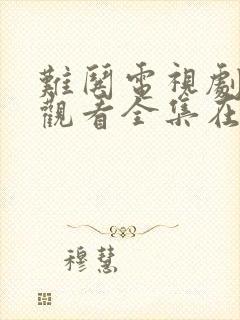 難閱電視劇
觀看全集在
穆慧